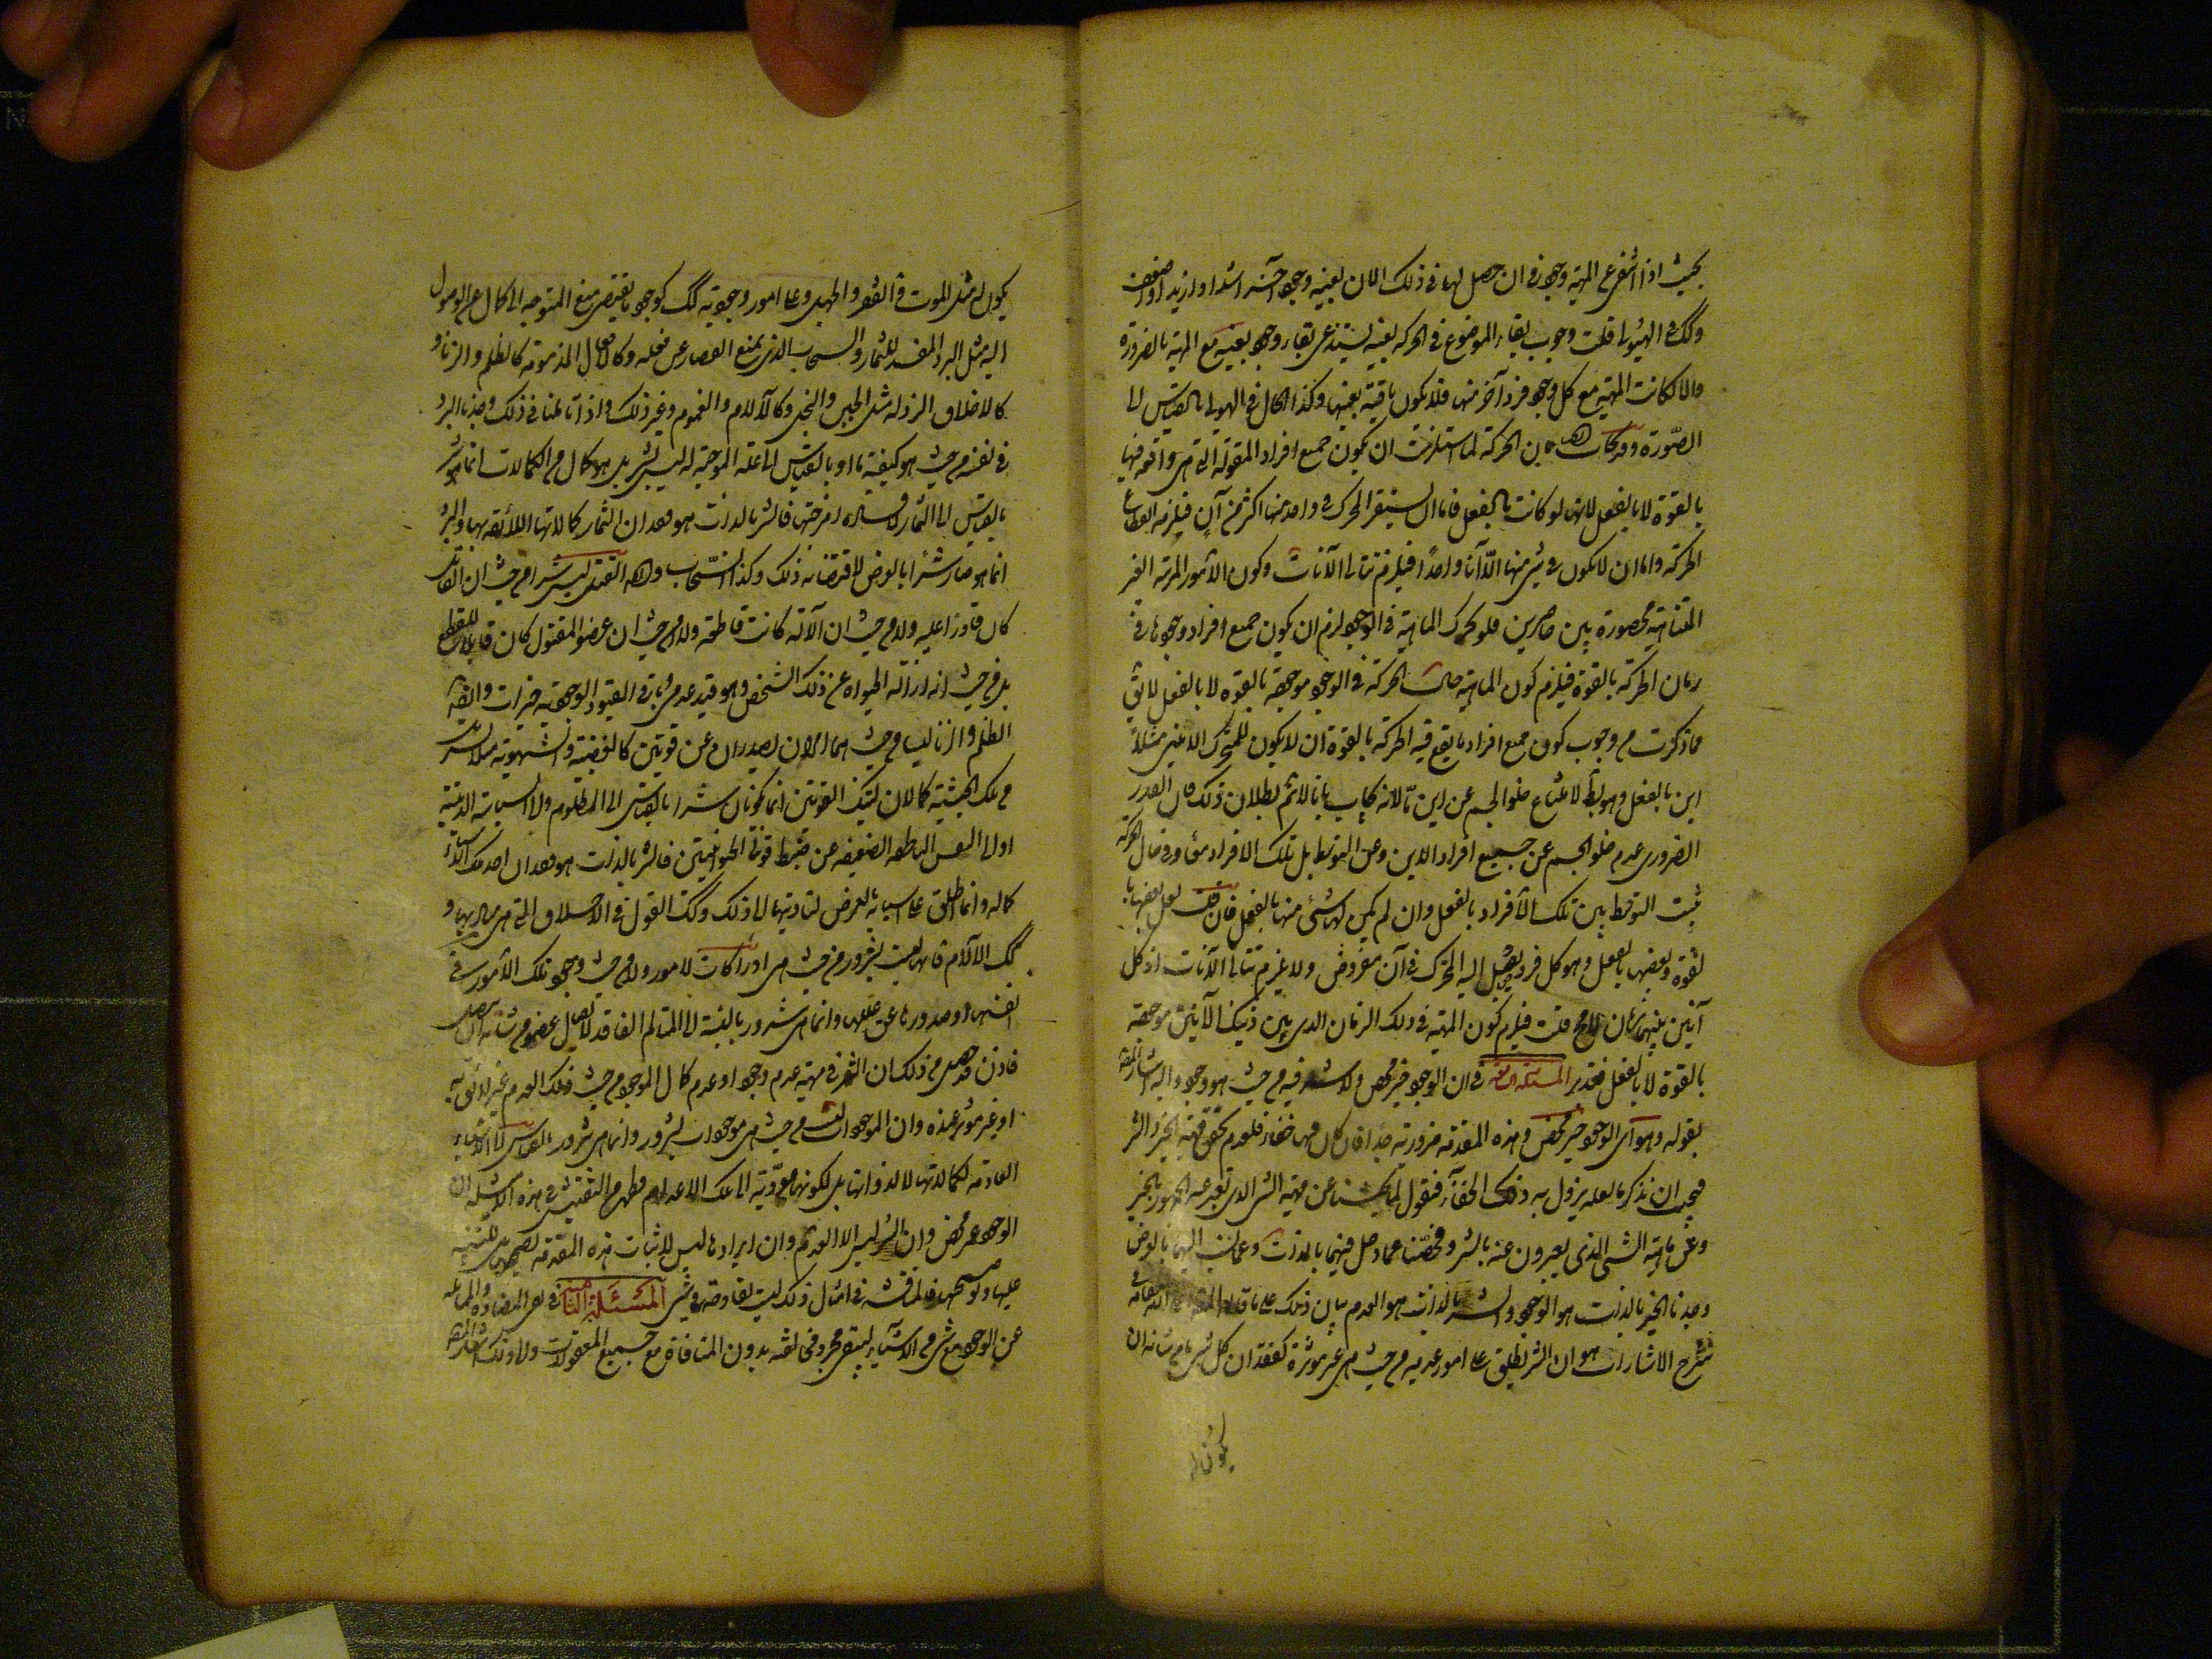 بحيث اذا انتفى عن المهية وجود فى ان حصل لها فى ذلك الان بعينه وجود آخر اشد او ازيد او اضعف
وكك الهيولى قلت وجوب بقاء الموضوع فى الحركة بعينه يستدعى بقاء وجود بعينه مع المهية بالضرورة
والا لكانت المهية مع كل وجود فرد آخر منها فلا يكون باقية بعينها وكذا الحال فى الهيولى بالقياس الى
الصورة وقد كانت بين الحركة لما استلزمت ان يكون جميع افراد المقولة التى هى واقعة فيها
بالقوة لا بالفعل لانها لو كانت بالفعل فاما ان يستقر المتحرك فى واحد منها اكثر من آن فيلزم انقطاع
الحركة واما ان لا يكون فى شىء منها الا آنا واحدا فيلزم تتالى الآنات وكون الامور المرتبة الغير
المتناهية محصورة بين حاصرين فلو تحرك الماهية فى الوجود لزم ان يكون جميع افراد وجودها فى
زمان الحركة بالقوة فيلزم كون الماهية حال الحركة فى الوجود موجودة بالقوة لا بالفعل لا يق
ما ذكرت من وجوب كون جميع افراد ما يقع فيه الحركة بالقوة ان لا يكون للمتحرك الاينى مثلا
اين بالفعل وهو بط لامتناع خلو الجسم عن اين ما لانه يجاب بانا لا نم بطلان ذلك فان القدر
الضرورى عدم خلو الجسم عن جميع افراد الاين وعن التوسط بل تلك الافراد معا وفى حال الحركة
يثبت التوسط بين تلك الافراد بالفعل وان لم يكن لها شىء منها بالفعل فان قلت لعل بعضها با
لقوة وبعضها بالفعل وهو كل فرد يصل اليه المتحرك فى آن مفروض ولا يلزم تتالى الآنات اذ كل
آنين بينهما زمان قلت فيلزم كون المهية فى ذلك الزمان الذى بين ذينك الآنين موجودة
بالقوة لا بالفعل فتدبر المسئلة فى ان الوجود خير محض ولا شر فيه من حيث هو وجود واليه اشار المصنف
بقوله وهو اى الوجود خير محض وهذه المقدمة ضرورية جدا فان كان فيها خفاء فلعدم تحقق مهية الخير والشر
فيجب ان نذكر ما لعله يزول به ذلك الخفاء فنقول لما بحثنا عن مهية الشر الذى تعبر عنه الجمهور بالخير
وعن ماهية الشىء الذى يعبرون عنه بالشر وفحصنا عما دخل فيهما بالذات وعما نسب اليهما بالعرض
وجدنا الخير بالذات هو الوجود والشر بالذات هو العدم بيان ذلك على ما قاله المحقق فى
شرح الاشارات هو ان الشر يطلق على امور عدمية من حيث هى غير مؤثرة كفقدان كل شىء ما من شانه ان
يكون له
يكون له مثل الموت فى الفقر والجهل وعلى امور وجودية كك كوجود ما يقتضى منع المتوجه الى كمال عن الوصول
اليه مثل البرد المفسد للثمار والسحاب الذى يمنع القصار عن فعله وكالافعال المذمومة كالظلم والزنا و
كالاخلاق الرذيلة مثل الجبن والبخل وكالآلام والغموم وغير ذلك واذا تاملنا فى ذلك وجدنا البرد
فى نفسه من حيث هو كيفية ما او بالقياس الى علته الموجبة له ليس بشر بل هو كمال من الكمالات انما هو شر
بالقياس الى الثمار لافساده امزجتها فالشر بالذات هو فقدان الثمار كمالاتها اللائقة بها والبرد
انما هو صار شرا بالعرض لاقتضائه ذلك وكذا السحاب وهذا القتل ليس شرا من حيث ان القاتل
كان قادرا عليه ولا من حيث ان الآلة كانت قاطعة ولا من حيث ان عضو المقتول كان قابلا للقطع
بل من حيث انه ازالة الحيوة عن ذلك الشخص وهو قيد عدمى وباقى القيود الوجودية خيرات وايضا
الظلم والزنا ليسا من حيث هما امران يصدران عن قوتين كالغضبية والشهوية مثلا بشر
من تلك الحيثية كمالان لتينك القوتين انما يكونان شرا بالقياس الى المظلوم او الى السياسة المدنية
او الى النفس الناطقة الضعيفة عن ضبط قوتيها الحيوانيتين فالشر بالذات هو فقدان احد تلك الاشياء
كماله وانما اطلق على اسبابه بالعرض لتاديتها الى ذلك وكك القول فى الاخلاق التى هى مباديها و
كك الآلام فانها ليست بشرور من حيث هى ادراكات لامور ولا من حيث وجود تلك الامور فى
انفسها او صدورها عن عللها وانما هى شرور بالنسبة الى المتالم الفاقد لاتصال عضو من شانه ان يتصل
فاذن قد حصل من ذلك ان الشر فى مهيته عدم وجود او عدم كمال الموجود من حيث ذلك العدم غير لائق به
او غير مؤثر عنده وان الموجودات ليست من حيث هى موجودات بشرور وانما هى شرور بالقياس الى الاشياء
العادمة لكمالاتها لا لذواتها بل لكونها مؤدية الى تلك الاعدام فظهر من التفتيش فى هذه الامثلة ان
الوجود خير محض وان الشر ليس الا العدم وان ايرادها ليس لاثبات هذه المقدمة بل للتنبيه
عليها وتوضيحها فالمناقشة فى امثال ذلك ليست بقادحة فى شىء المسئلة التاسعة فى نفى المضادة والمماثلة
عن الوجود مع شىء من الاشياء ليبقى مجردا فى نفسه بدون المنافاة مع جميع المعقولات والى ذلك اشار المصنف